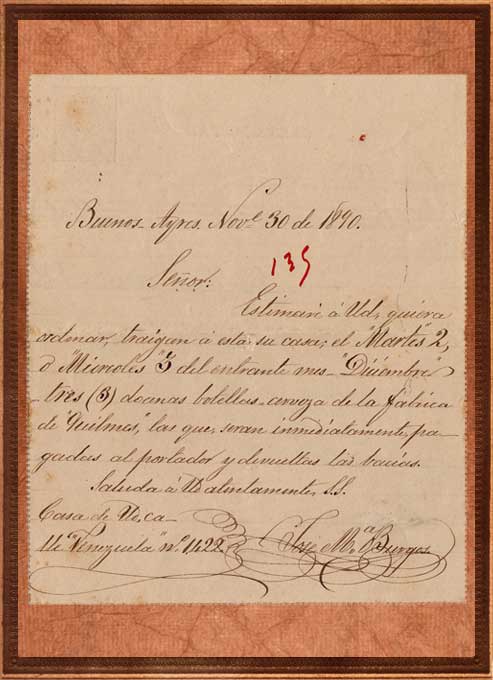 Buenos Ayres, Nov.e 30 de 1890.
135
Señor:
Estimaré á Ud, quiera
ordenar, traigan á esta su casa; el "Martes" 2,
ó "Miercoles" 3 del entrante mes "Diciembre"
tres (3) docenas botellas cerveza de la fábrica
de "Quilmes", las que, seran inmediatamente, pa-
gadas al portador y devueltas las bacías.
Saluda á Ud atentamente, S.S.
Casa de Ud, ca-
lle "Venezuela" nº 1422
José M.a Burgos